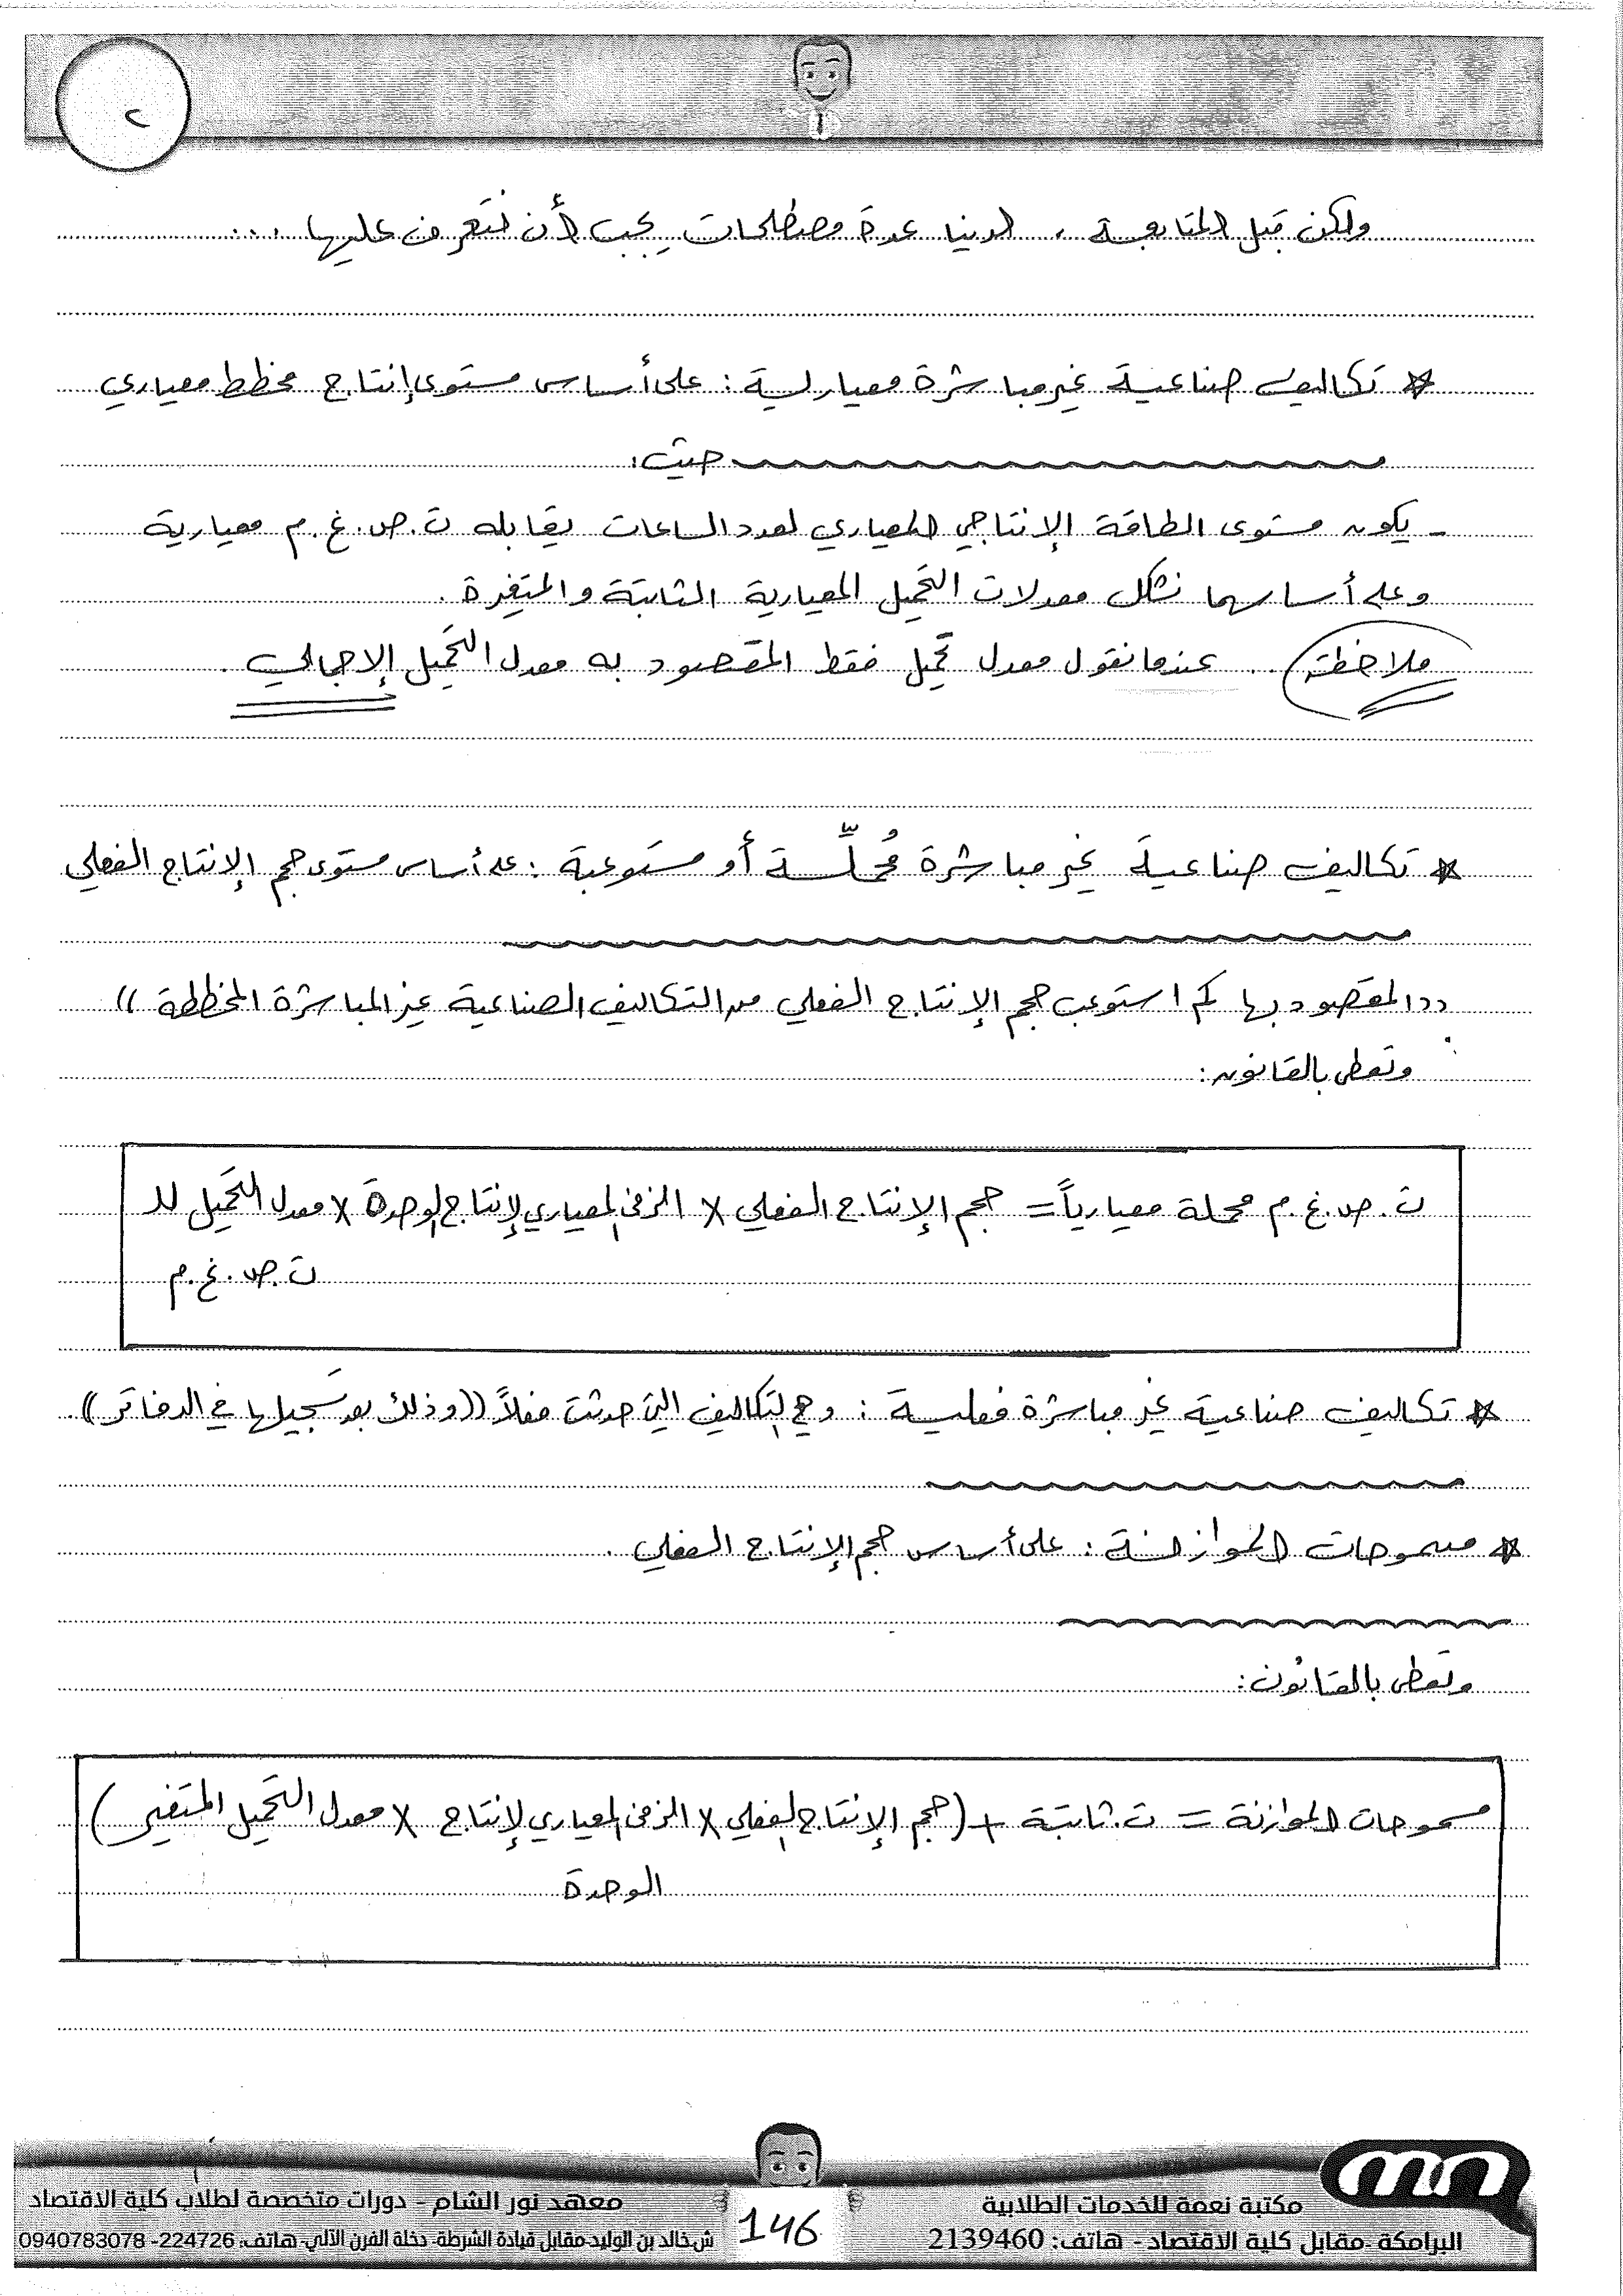 ٢
ولكن قبل المتابعة ، لدينا عدة مصطلحات يجب أن نتعرف عليها ...
* تكاليف صناعية غير مباشرة معيارية : على أساس مستوى إنتاج مخطط معياري
حيث :
- يكون مستوى الطاقة الإنتاجي المعياري لعدد الساعات يقابله ت.ص.غ.م معيارية
وعلى أساسها نشكل معدلات التحميل المعيارية الثابتة والمتغيرة .
ملاحظة .. عندما نقول معدل تحميل فقط المقصود به معدل التحميل الإجمالي .
* تكاليف صناعية غير مباشرة مُحمّلة أو مستوعبة : على أساس مستوى حجم الإنتاج الفعلي
((المقصود بها كم استوعب حجم الإنتاج الفعلي من التكاليف الصناعية غير المباشرة المخططة ))
وتعطى بالقانون :
ت.ص.غ.م محملة معيارياً = حجم الإنتاج الفعلي × الزمن المعياري لإنتاج الوحدة × معدل التحميل لل
ت.ص.غ.م
* تكاليف صناعية غير مباشرة فعلية : وهي التكاليف التي حدثت فعلاً ((وذلك بعد تسجيلها في الدفاتر)).
* مسموحات الموازنة : على أساس حجم الإنتاج الفعلي .
وتعطى بالقانون :
مسموحات الموازنة = ت.ثابتة + (حجم الإنتاج الفعلي × الزمن المعياري لإنتاج × معدل التحميل المتغير)
الوحدة
مكتبة نعمة للخدمات الطلابية
البرامكة -مقابل كلية الاقتصاد - هاتف: 2139460
146
معهد نور الشام - دورات متخصصة لطلاب كلية الاقتصاد
ش خالد بن الوليد-مقابل قيادة الشرطة- دخلة الفرن الآلي- هاتف: 224726- 0940783078